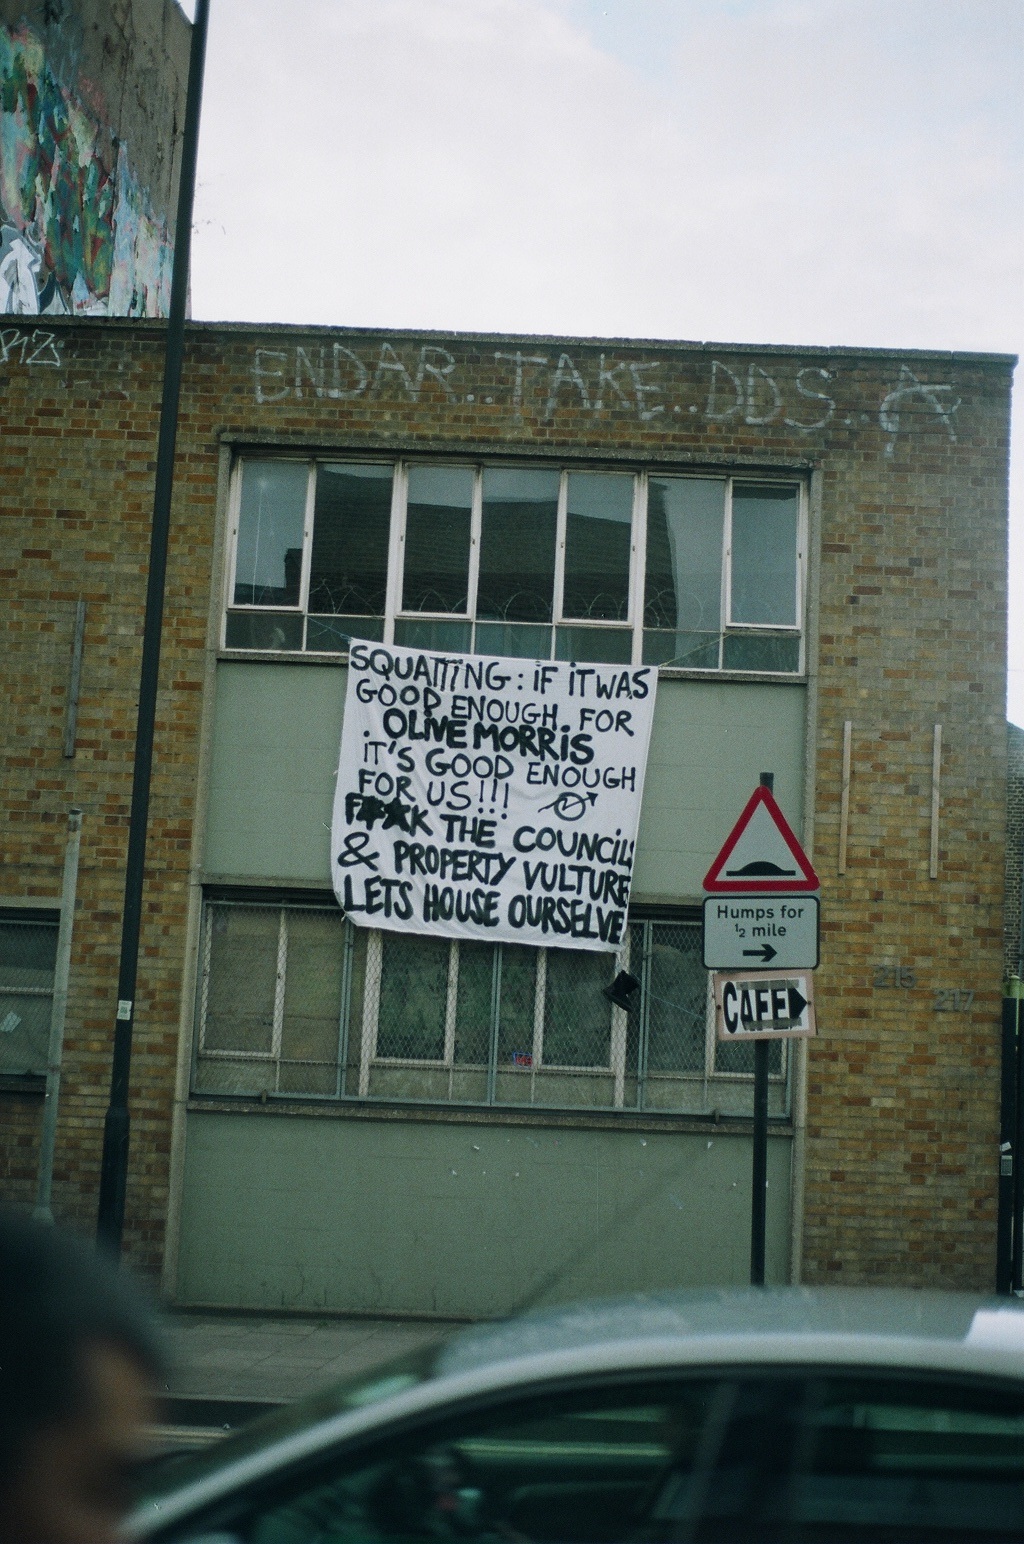 ENDAR..TAKE..DDS..A
SQUATTING: IF IT WAS
GOOD ENOUGH FOR
OLIVE MORRIS
IT'S GOOD ENOUGH
FOR US!!!
F**CK THE COUNCIL
& PROPERTY VULTURE
LETS HOUSE OURSELVE
Humps for
½ mile
CAFE
215
217